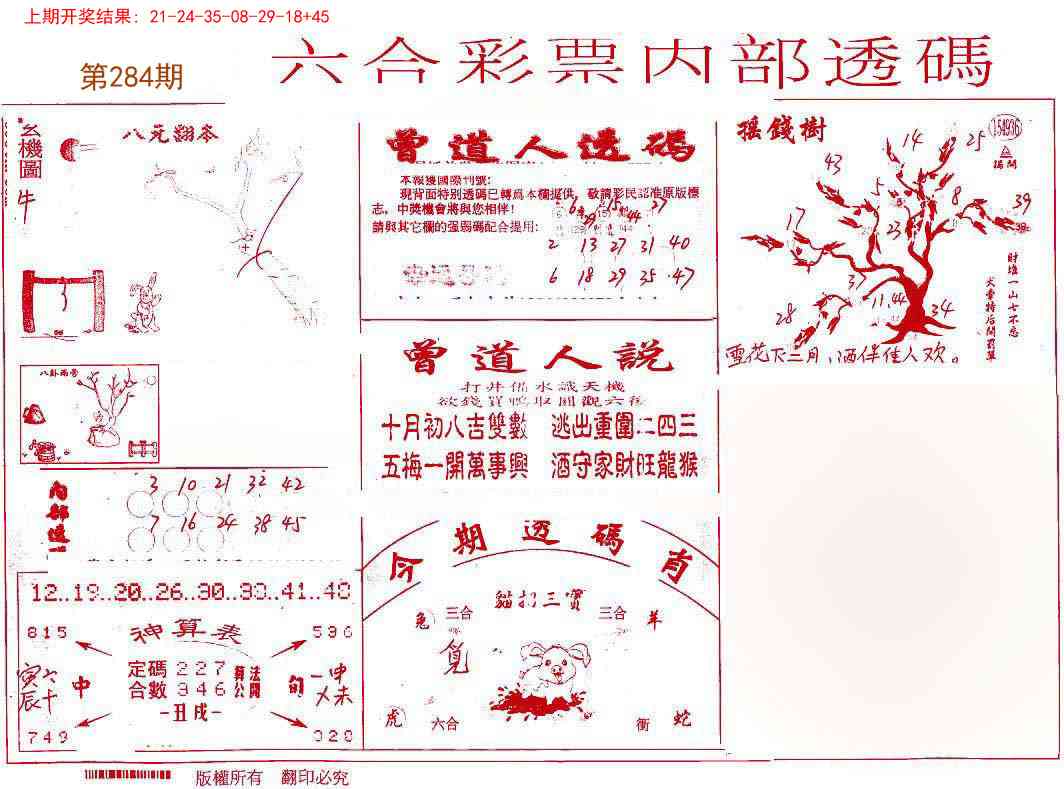 上期开奖结果：21-24-35-08-29-18+45
第284期
六合彩票内部透碼
玄機圖
牛
八元翻本
曾道人透码
本報獲國際刊號:
現背面特别透碼已轉爲本欄提供，敬請彩民認准原版標
志，中獎機會將與您相伴！
請與其它欄的强弱碼配合提用:
6 15 37
29 44
2 13 27 31 40
6 18 29 35 47
摇錢樹
154936
14 25
43
5 8 39
17 23
37
28 11.44 34
財堆一山七不忘
雪花下三月，酒伴佳人欢。
曾道人説
打井備水識天機
十月初八吉雙數 逃出重圍二四三
五梅一開萬事興 酒守家財旺龍猴
八卦兩旁
内部透
3 10 21 32 42
7 16 24 38 45
今期透碼肖
12..19..20..26..30..33..41..48
815 神算表 536
定碼 227
合數 346
算公
法開
寅辰
六十
中
旬
申未
一丑戌一
749 020
三合 三合 羊
兔
虎 六合 衝 蛇
版權所有 翻印必究